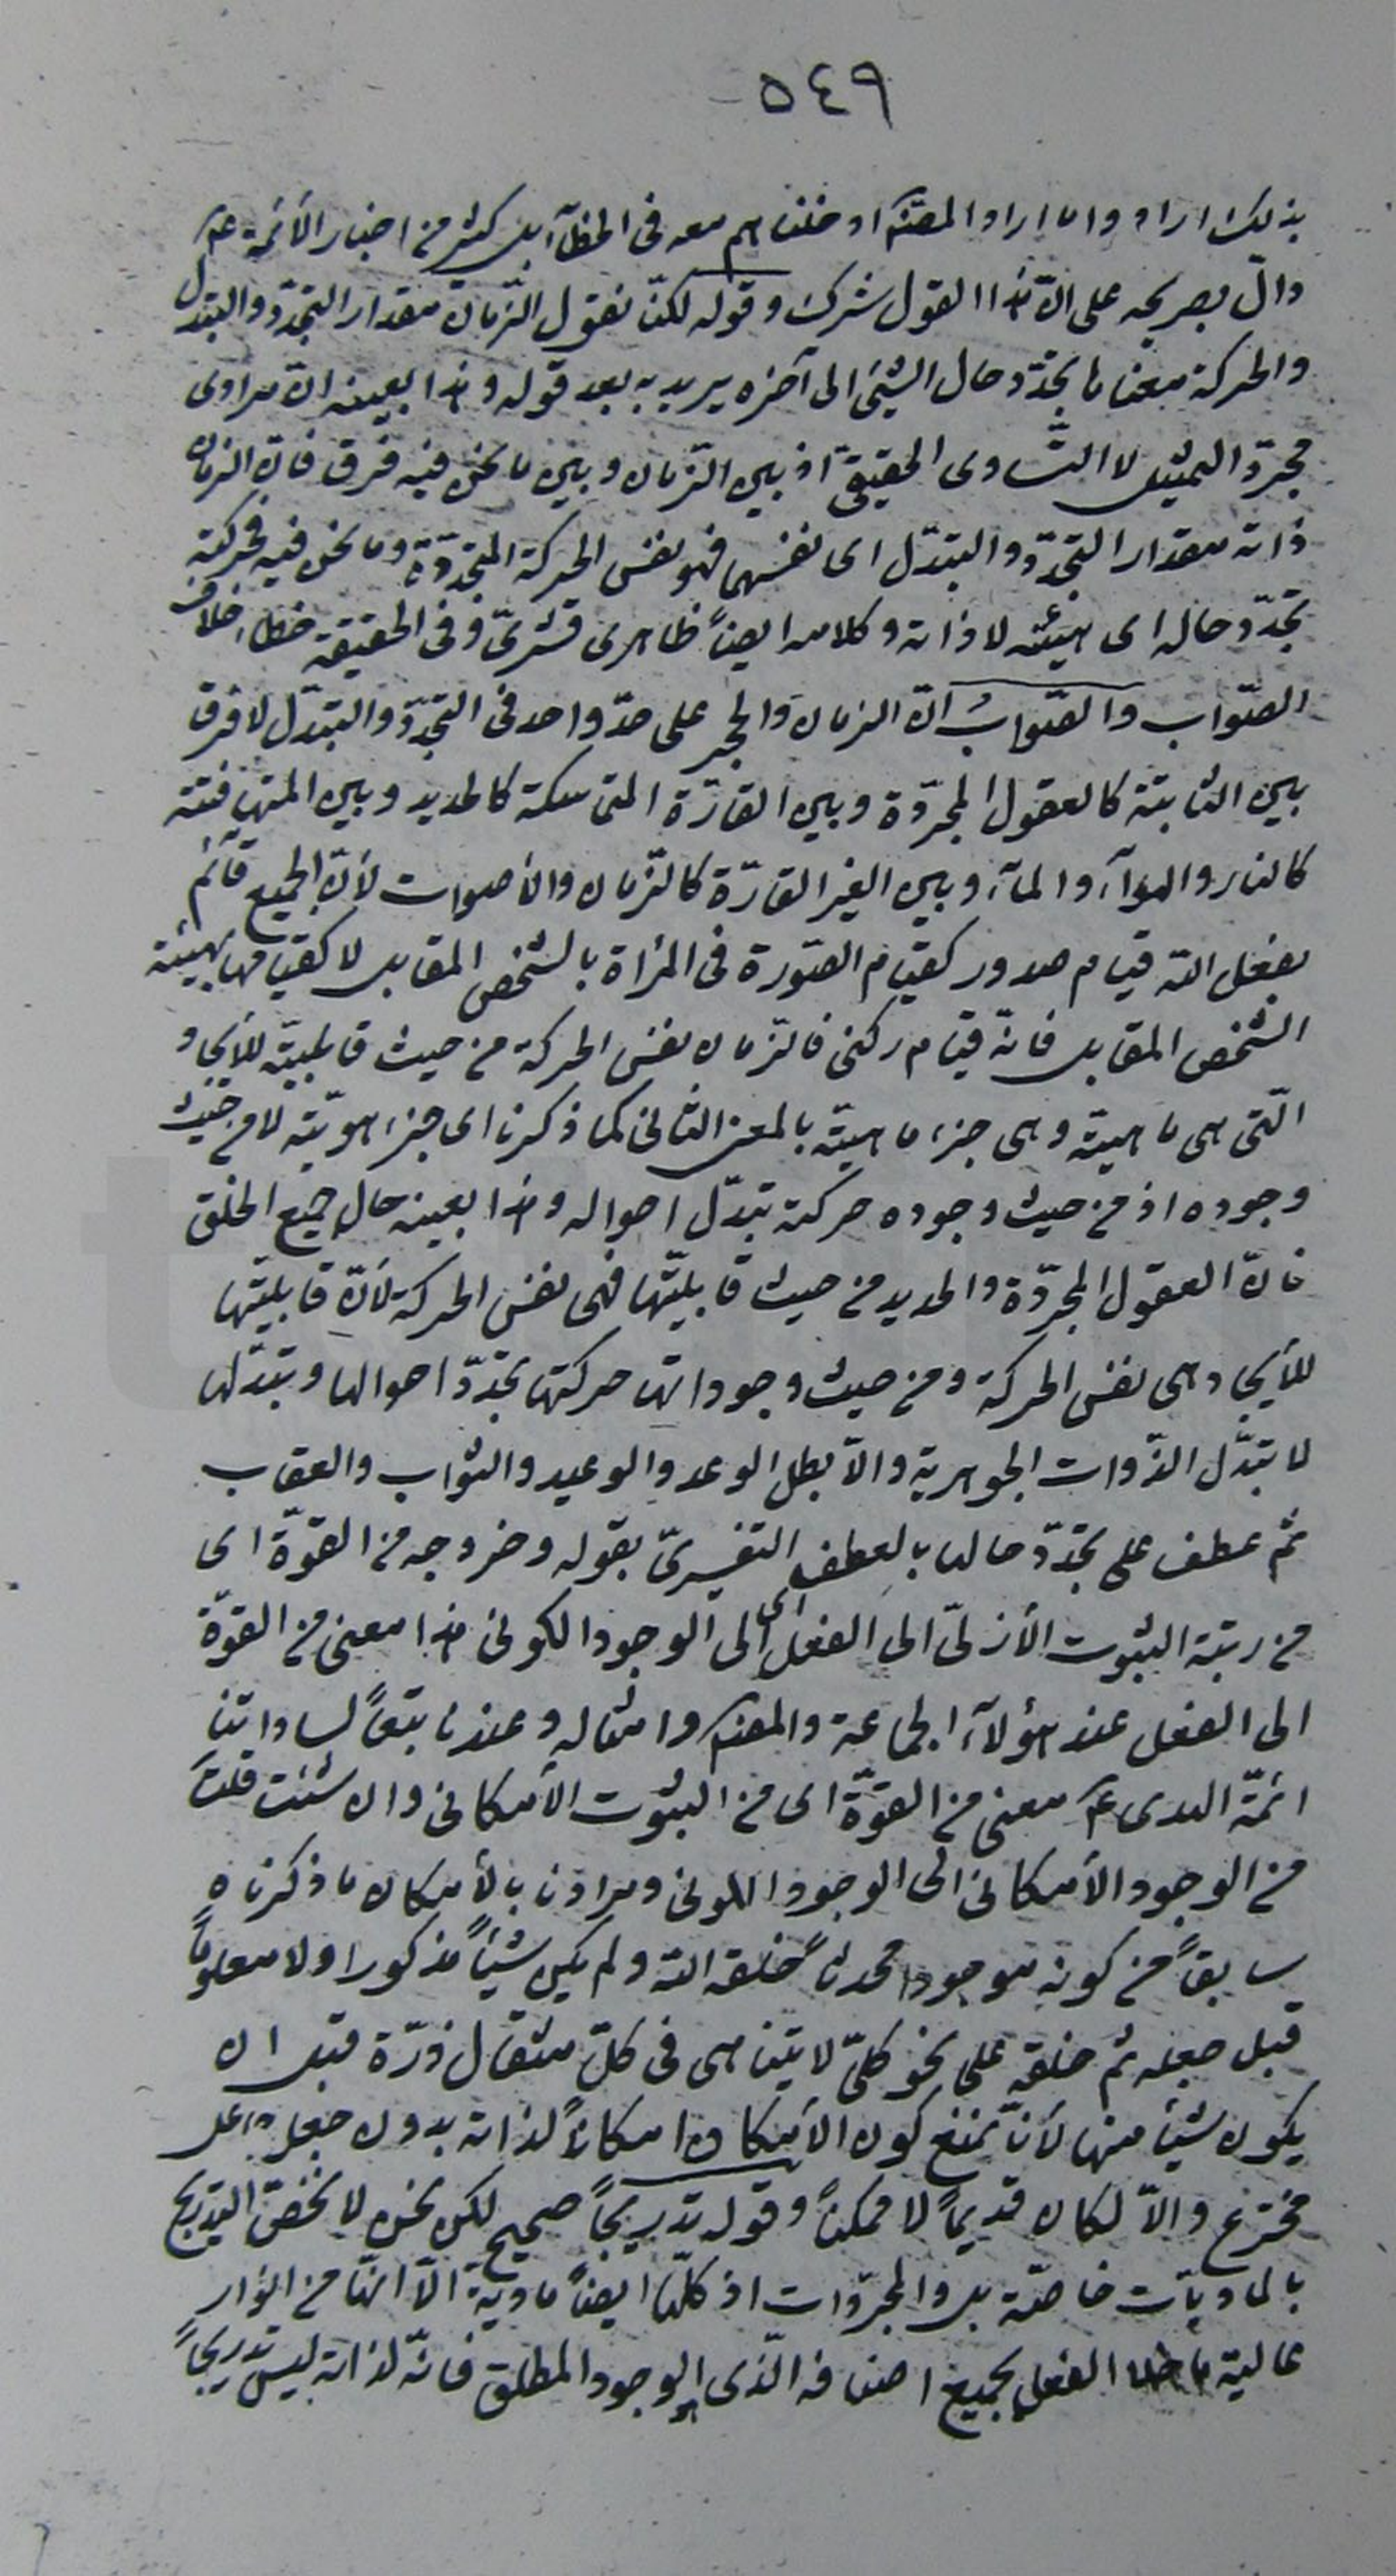 ٥٤٩
بذلك اراد واما اراد المصنف او خلفناهم معه فى الخطآ بل كثير من اخبار الأئمة ع
دالّ بصريحه على انّ هذا القول شرك وقوله لكنّا نقول الزّمان مقدار التجدّد والتبدل
والحركة معناها تجدّد حال الشيئ الى آخره يريد به بعد قوله وهذا بعينه انّ مرادى
مجرّد التمثيل لا التّساوى الحقيقىّ اذ بين الزّمان وبين ما نحن فيه فرق فانّ الزمان
ذاته مقدار التجدّد والتبدّل اى نفسهما فهو نفس الحركة المتجدّدة وما نحن فيه فحركته
تجدّد حاله اى هيئته لا ذاته وكلامه ايضاً ظاهرى قشرىّ وفى الحقيقة خطاء خلاف
الصّواب والصّواب انّ الزمان والحجر على حدّ واحد فى التجدّد والتبدّل لا فرق
بين الثابتة كالعقول المجرّدة وبين القارّة المتماسكة كالحديد وبين المتهافتة
كالنار والهوآء والمآء وبين الغير القارّة كالزّمان والأصوات لأنّ الجميع قآئم
بفعل الله قيام صدور كقيام الصّورة فى المرأة بالشخص المقابل لا كقيامها بهيئة
الشخص المقابل فانّه قيام ركنى فالزّمان نفس الحركة من حيث قابليّته للأيجاد
الّتى هى ماهيته وهى جزء ماهيّته بالمعنى الثانى كما ذكرنا اى جزء هويّته لا من حيث
وجوده اذ من حيث وجوده حركته تبدّل احواله وهذا بعينه حال جميع الخلق
فانّ العقول المجرّدة والحديد من حيث قابليّتها فهى نفس الحركة لأنّ قابليّتها
للأيجاد هى نفس الحركة ومن حيث وجوداتها حركتها تجدّد احوالها وتبدّلها
لا تبدّل الذّوات الجوهرية والّا بطل الوعد والوعيد والثواب والعقاب
ثم عطف على تجدّد حالها بالعطف التفسيرىّ بقوله وخروجه من القوّة اى
من رتبة الثبوت الأزلىّ الى الفعل اى الى الوجود الكونى هذا معنى من القوّة
الى الفعل عند هؤلآء الجماعة والمصنف وامثاله وعندنا تبعاً لساداتنا
ائمّة الهدى ع معنى من القوّة اى من الثبوت الأمكانى وان شئت قلت
من الوجود الأمكانى الى الوجود الكونى ومرادنا بالأمكان ما ذكرناه
سابقاً من كونه موجودا محدثاً خلقه الله ولم يكن شيئاً مذكورا ولا معلوماً
قبل جعله ثم خلقه على نحو كلىّ لا يتناهى فى كلّ مثقال ذرّة قبل ان
يكون شيئا منها لأنّا نمنع كون الأمكان امكاناً لذاته بدون جعل جاعل
مخترع والّا لكان قديماً لا ممكناً وقوله تدريجاً صحيح لكن نحن لا نخصّ التدريج
بالماديّات خاصّة بل والمجرّدات اذ كلّها ايضاً مادية الّا انّها من انوار
عالية ما خلا الفعل بجميع اصنافه الّذى الوجود المطلق فانّه لذاته ليس تدريجاً